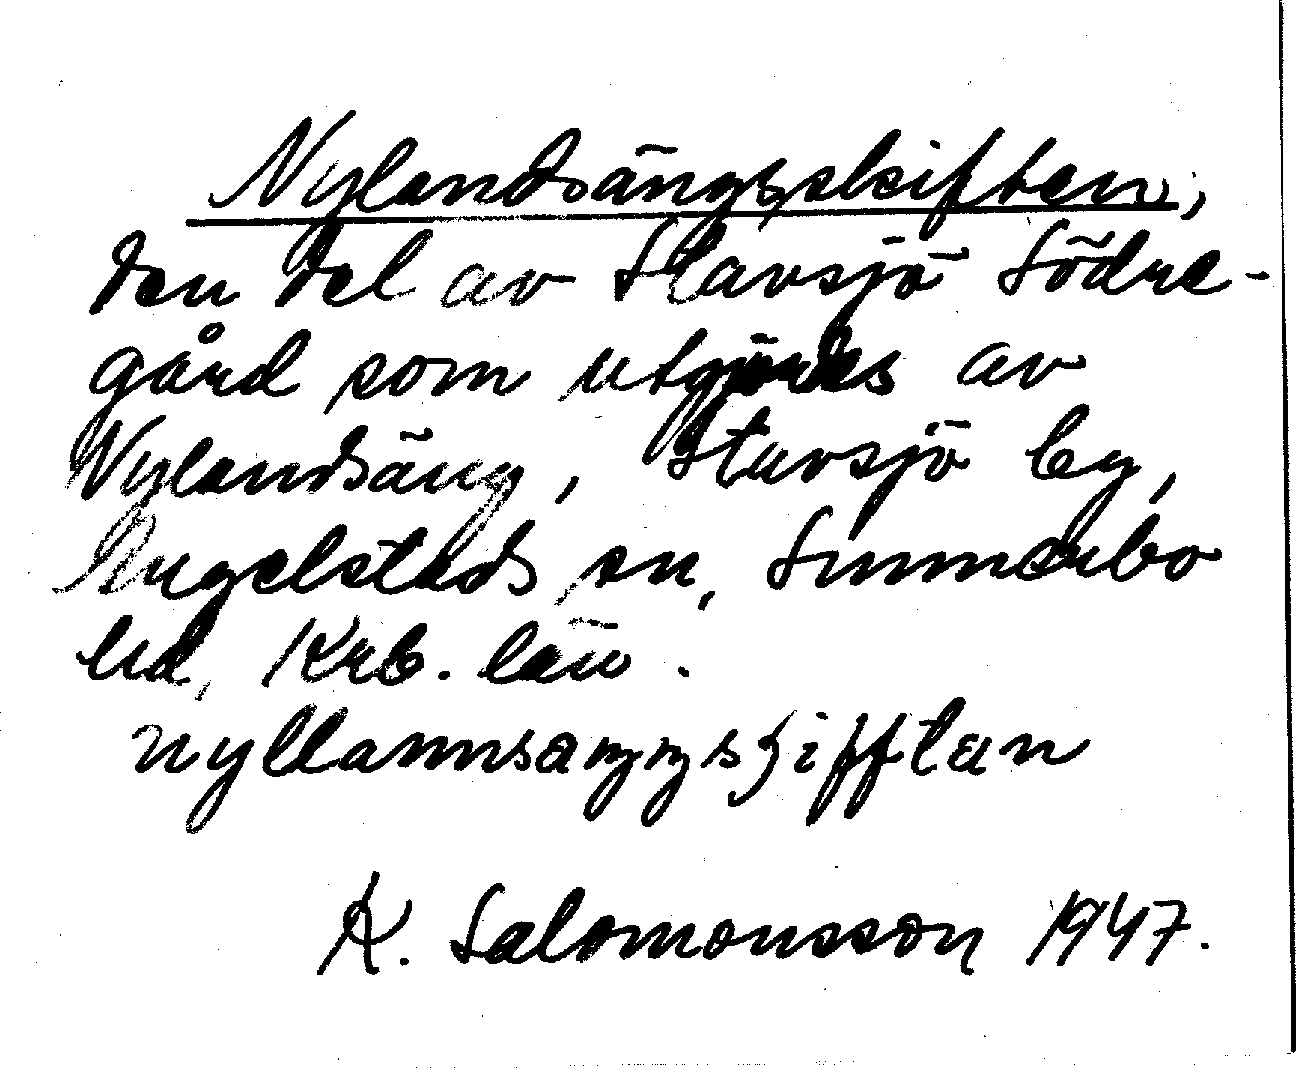 Nylandsängsskiften,
den del av Stavsjö Södre-
gård som utgöres av
Nylandsäng, Stavsjö by,
Ängelstads sn, Sunnerbo
hd, Krb. län.
nyllannsaŋŋsʃifftan
K. Salomonsson 1947.